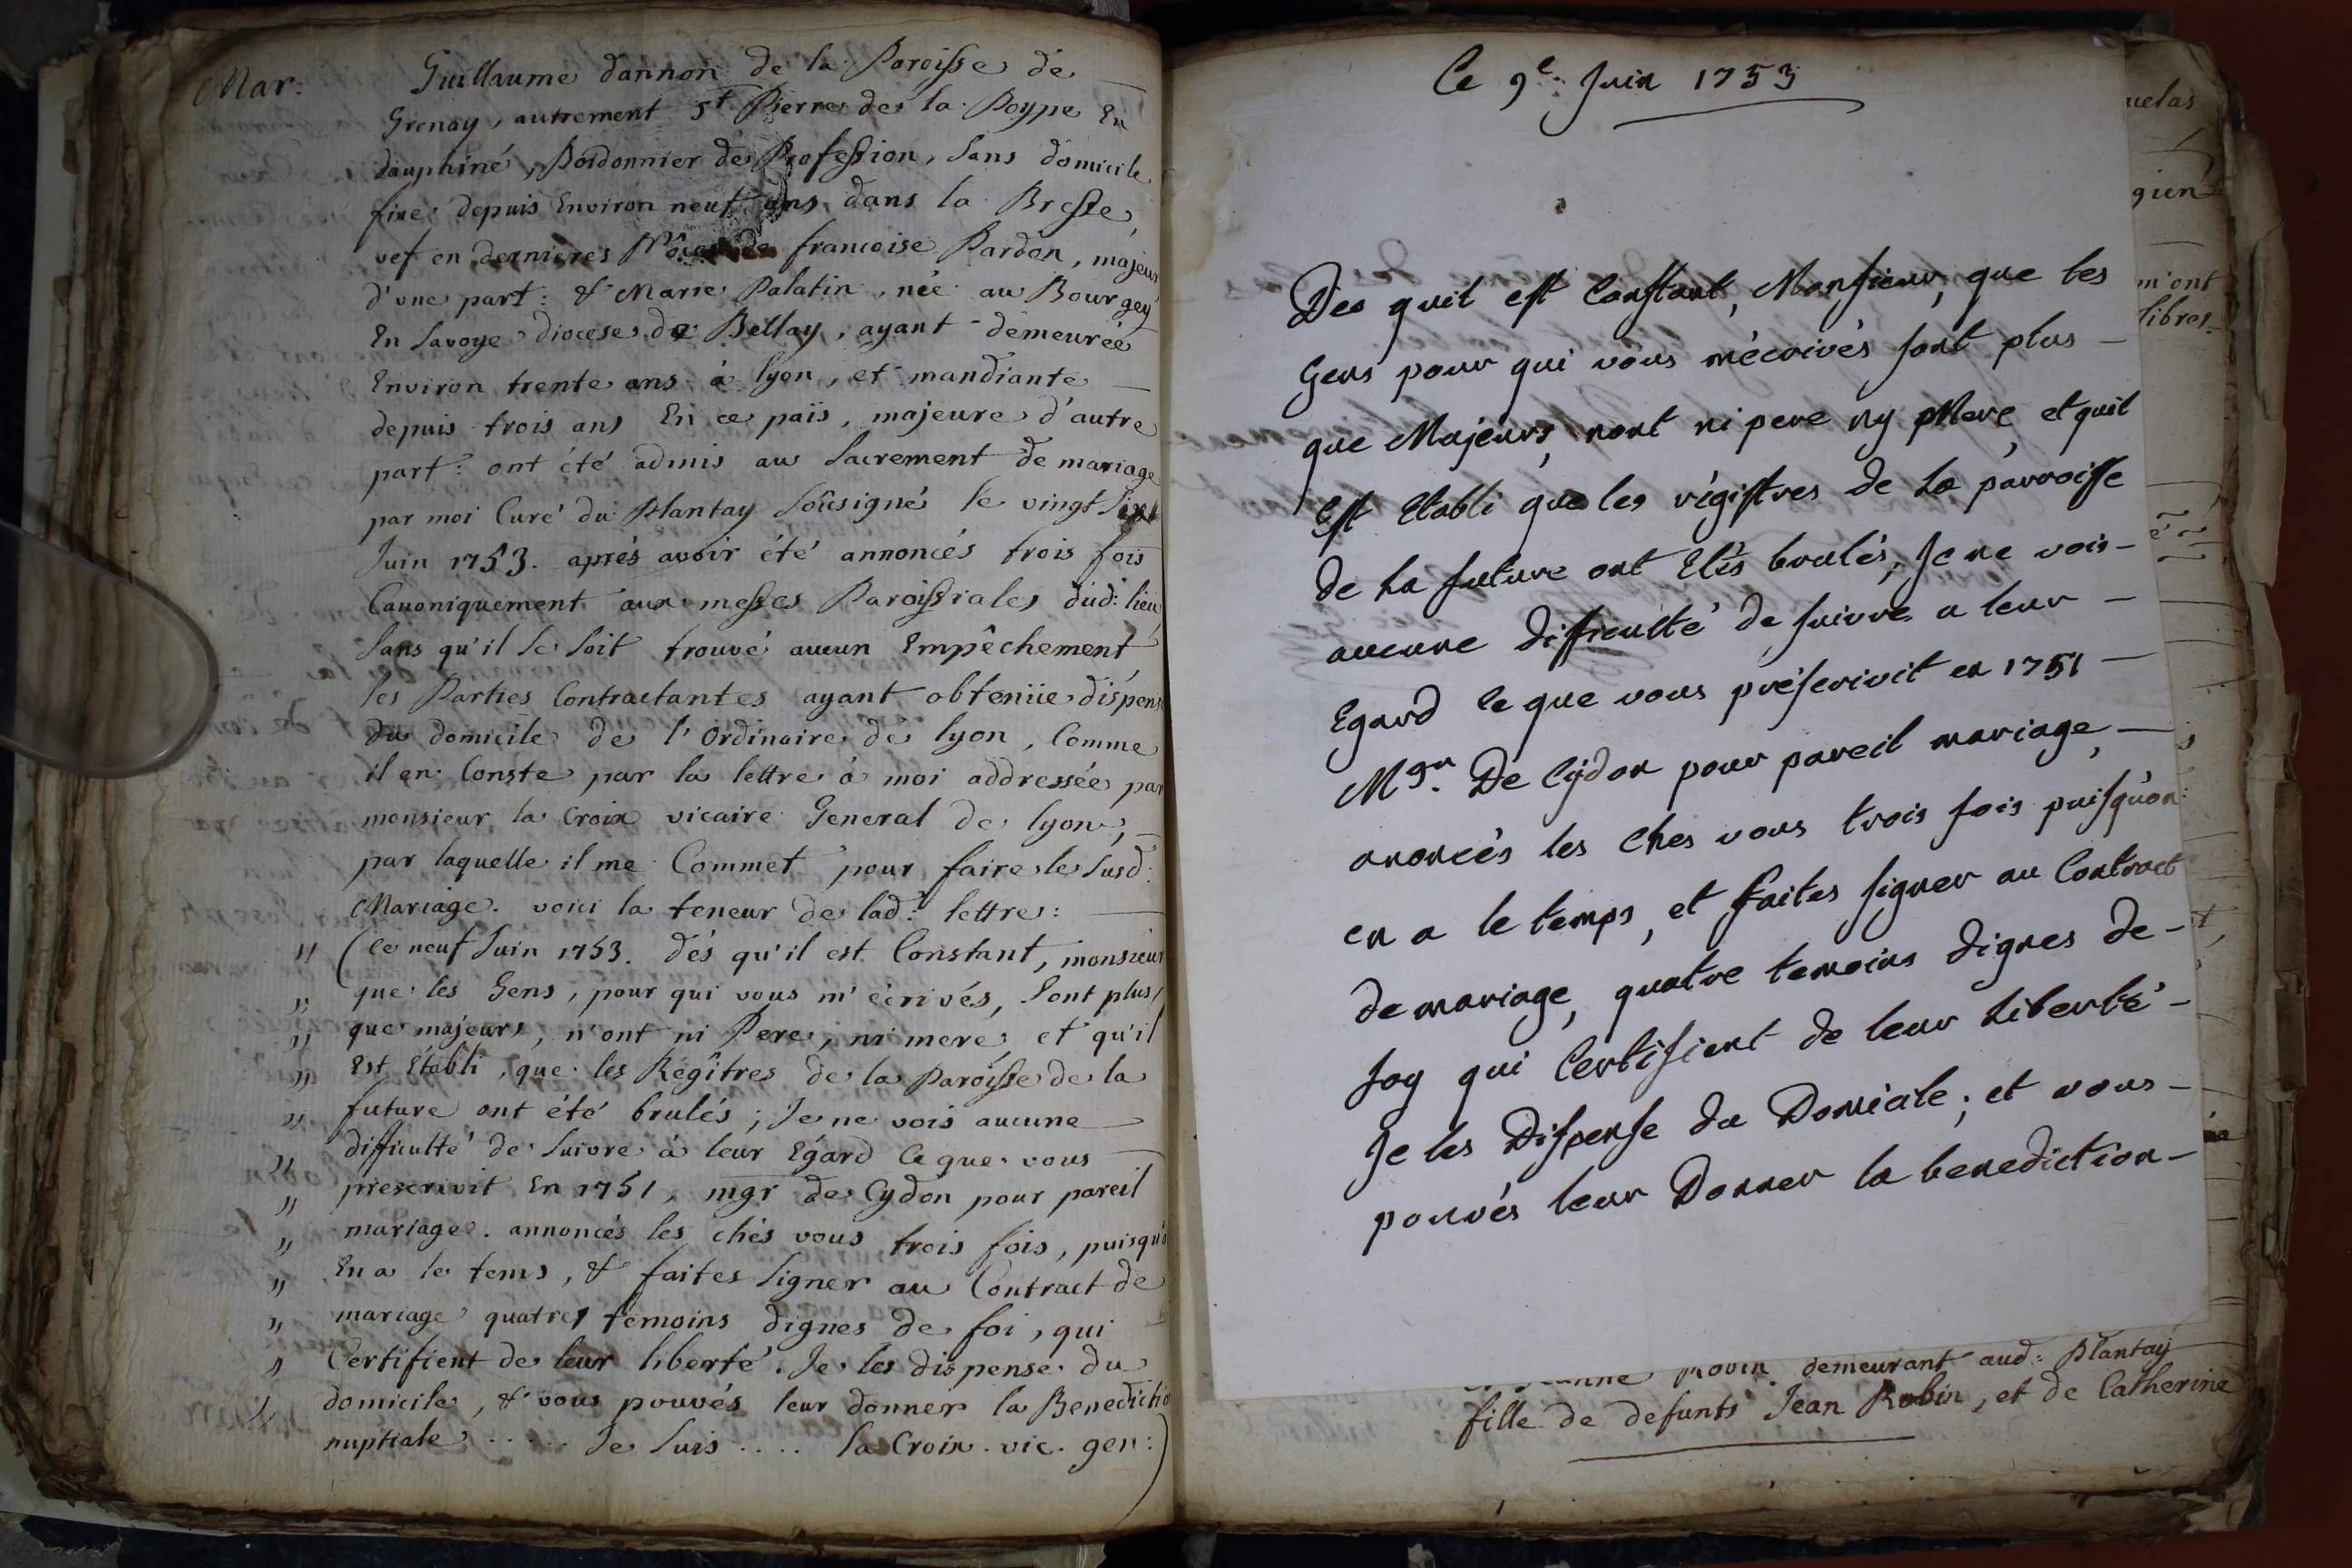 Mar: Guillaume dannon de la Paroisse de
Grenay, autrement St Pierre de la Poype En
dauphiné, Poidonnier de Profession, sans domicile
fixe depuis Environ neuf ans dans la Bresse,
vef en dernieres Nôces de francoise Pardon, majeur
d'une part: & Marie Palatin, née au Bourgey
En Savoye diocese de Bellay, ayant demeurée
Environ trente ans à lyon, et mandiante
depuis trois ans En ce païs, majeure d'autre
part: ont été admis au Sacrement de mariage
par moi Curé du Plantay Soûsigné le vingt Six
Juin 1753. aprés avoir été annoncés trois fois
Canoniquement aux messes Paroissiales dud: lieu
Sans qu'il se soit trouvé aucun Empêchement
les Parties Contractantes ayant obtenüe dispens
du domicile de l'Ordinaire de lyon, Comme
il en Conste par la lettre à moi addressée par
monsieur la Croix vicaire General de lyon,
par laquelle il me Commet pour faire le susd:
Mariage. voici la teneur de lad: lettre:
" (ce neuf Juin 1753. dés qu'il est Constant, monsieur
" que les Gens, pour qui vous m'écrivés, sont plus
" que majeurs, n'ont ni Pere, ni mere, et qu'il
" Est Établi, que les Régîtres de la Paroisse de la
" future ont été brulés; Je ne vois aucune
" difficulté de suivre à leur Égard Ce que vous
" prescrivit En 1751, mgr de Cydon pour pareil
" mariage. annoncés les chés vous trois fois, puisqu'o
" En a le tems, & faites signer au Contract de
" mariage quatre temoins dignes de foi, qui
" Certifient de leur liberté. Je les dispense du
" domicile, & vous pouvés leur donner la Benedictio
nuptiale ..... Je suis .... la Croix. vic. gen:)
Ce 9e. Juin 1753
Des quil est Constant, Monsieur, que les
Gens pour qui vous m'écrivés sont plus
que Majeurs, nont ni pere ny Mere, et quil
Est Etabli que les régistres de la parroisse
de La future ont Etés brulés, Je ne vois
aucune difficulté de suivre a leur
Egard ce que vous préscrivit en 1751
Mgr. De Cydon pour pareil mariage
anoncés les Ches vous trois fois puisquon
en a le temps, et faites signer au Contract
de mariage, quatre temoins dignes de
foy qui Certifient de leur Liberté
Je les Dispense du Domicile; et vous
pouvés leur Donner la benediction
demeurant aud: Plantay
fille de defunts Jean Robin, et de Catherine
uelas
m'ont
libres